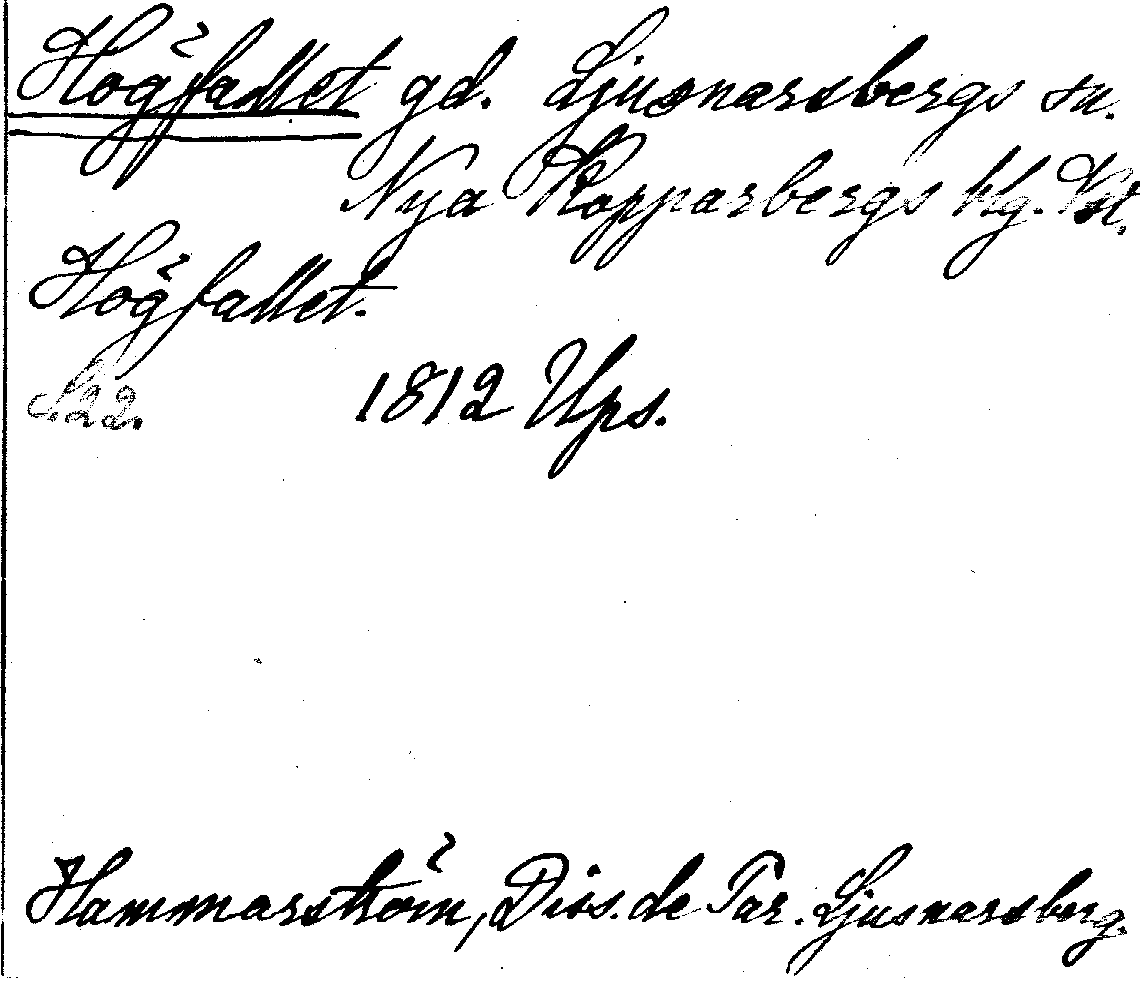 Högfallet gd. Ljusnarsbergs sn.
Nya Kopparbergs blg. Vst.
Högfallet.
S. 22. 1812 Ups.
Hammarström, Diss. de Par. Ljusnarsberg.